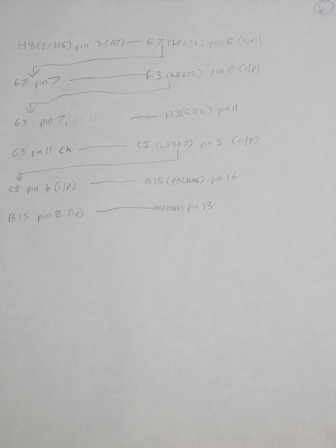 4
H8 (27256) pin 3 (A7) — G7 (LS273) pin 6 (o/p)
G7 pin 7 — G3 (LS273) pin 6 (o/p)
G3 pin 7 — H3 (6116) pin 11
G3 pin 11 clk — C2 (LS367) pin 5 (o/p)
C2 pin 4 (i/p) — B15 (PAL16R6) pin 16
B15 pin 8 (ip) — pin 13